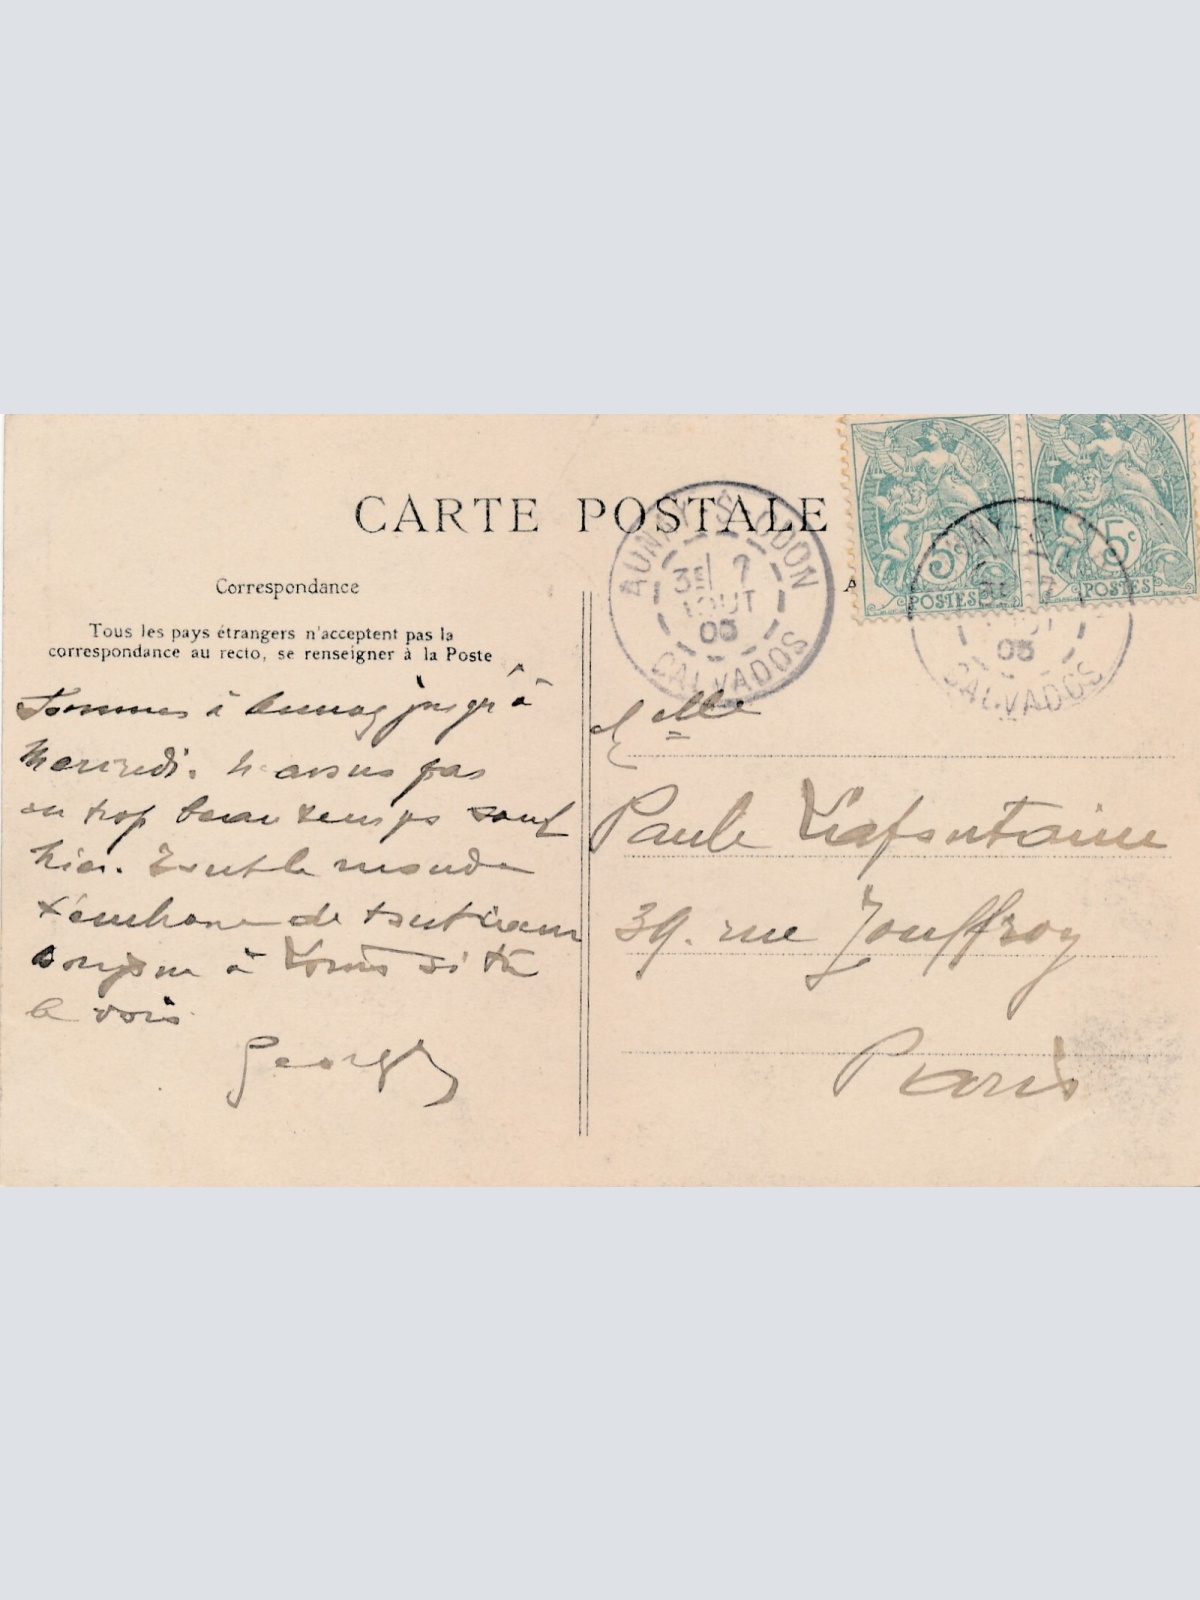 CARTE POSTALE
Correspondance
Tous les pays étrangers n'acceptent pas la
correspondance au recto, se renseigner à la Poste
Sommes à Aunay jusqu'à
Mercredi. n'avons pas
eu trop beau temps sauf
hier. Tout le monde
t'embrasse de tout cœur
à Louis si tu
le vois
Georges
AUNAY-S-ODON
3E 7
AOUT
05
CALVADOS
5c
POSTES
5c
POSTES
7
05
CALVADOS
A
Melle
Paule Lafontaine
39. rue Jouffroy
Paris